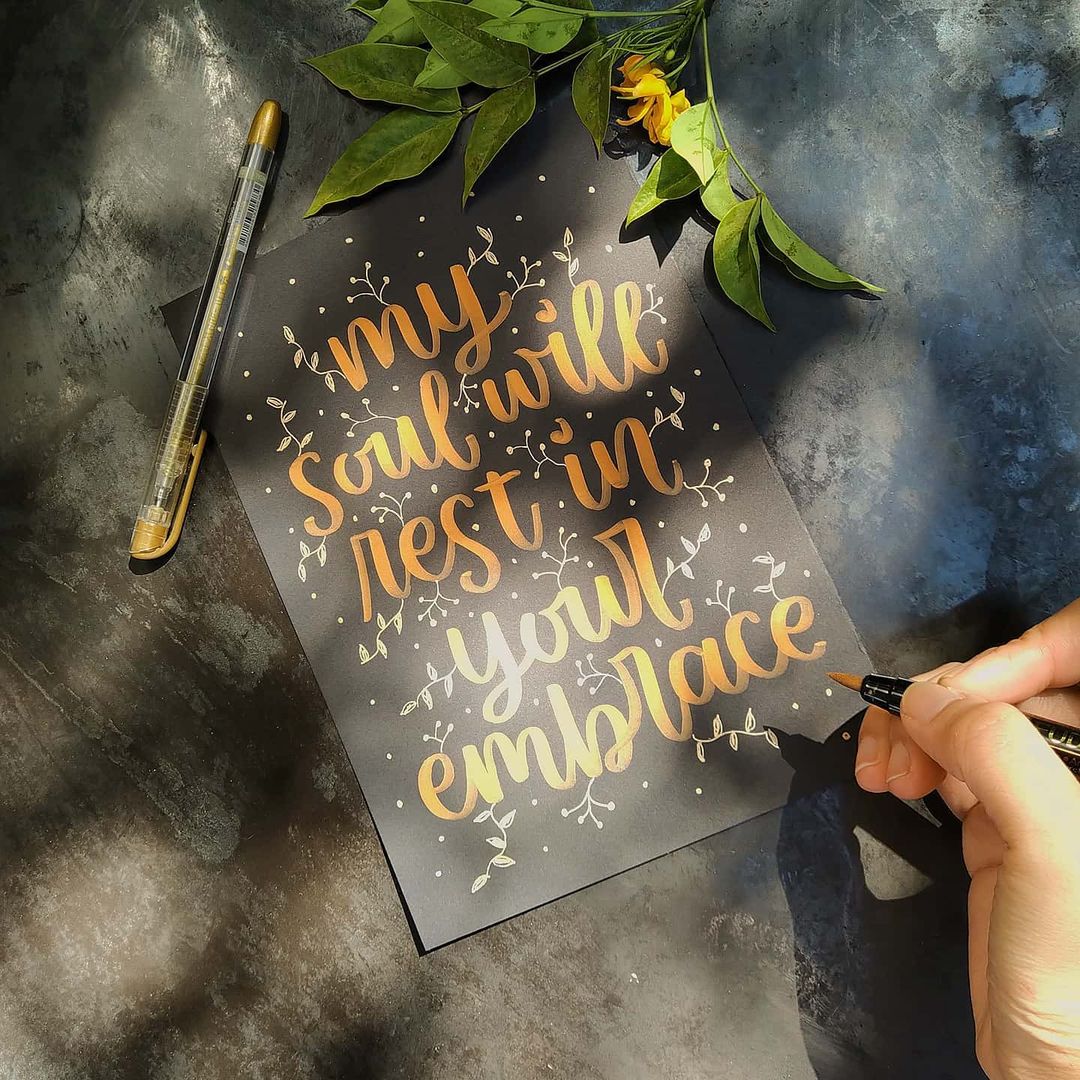 my
soul will
rest in
your
embrace